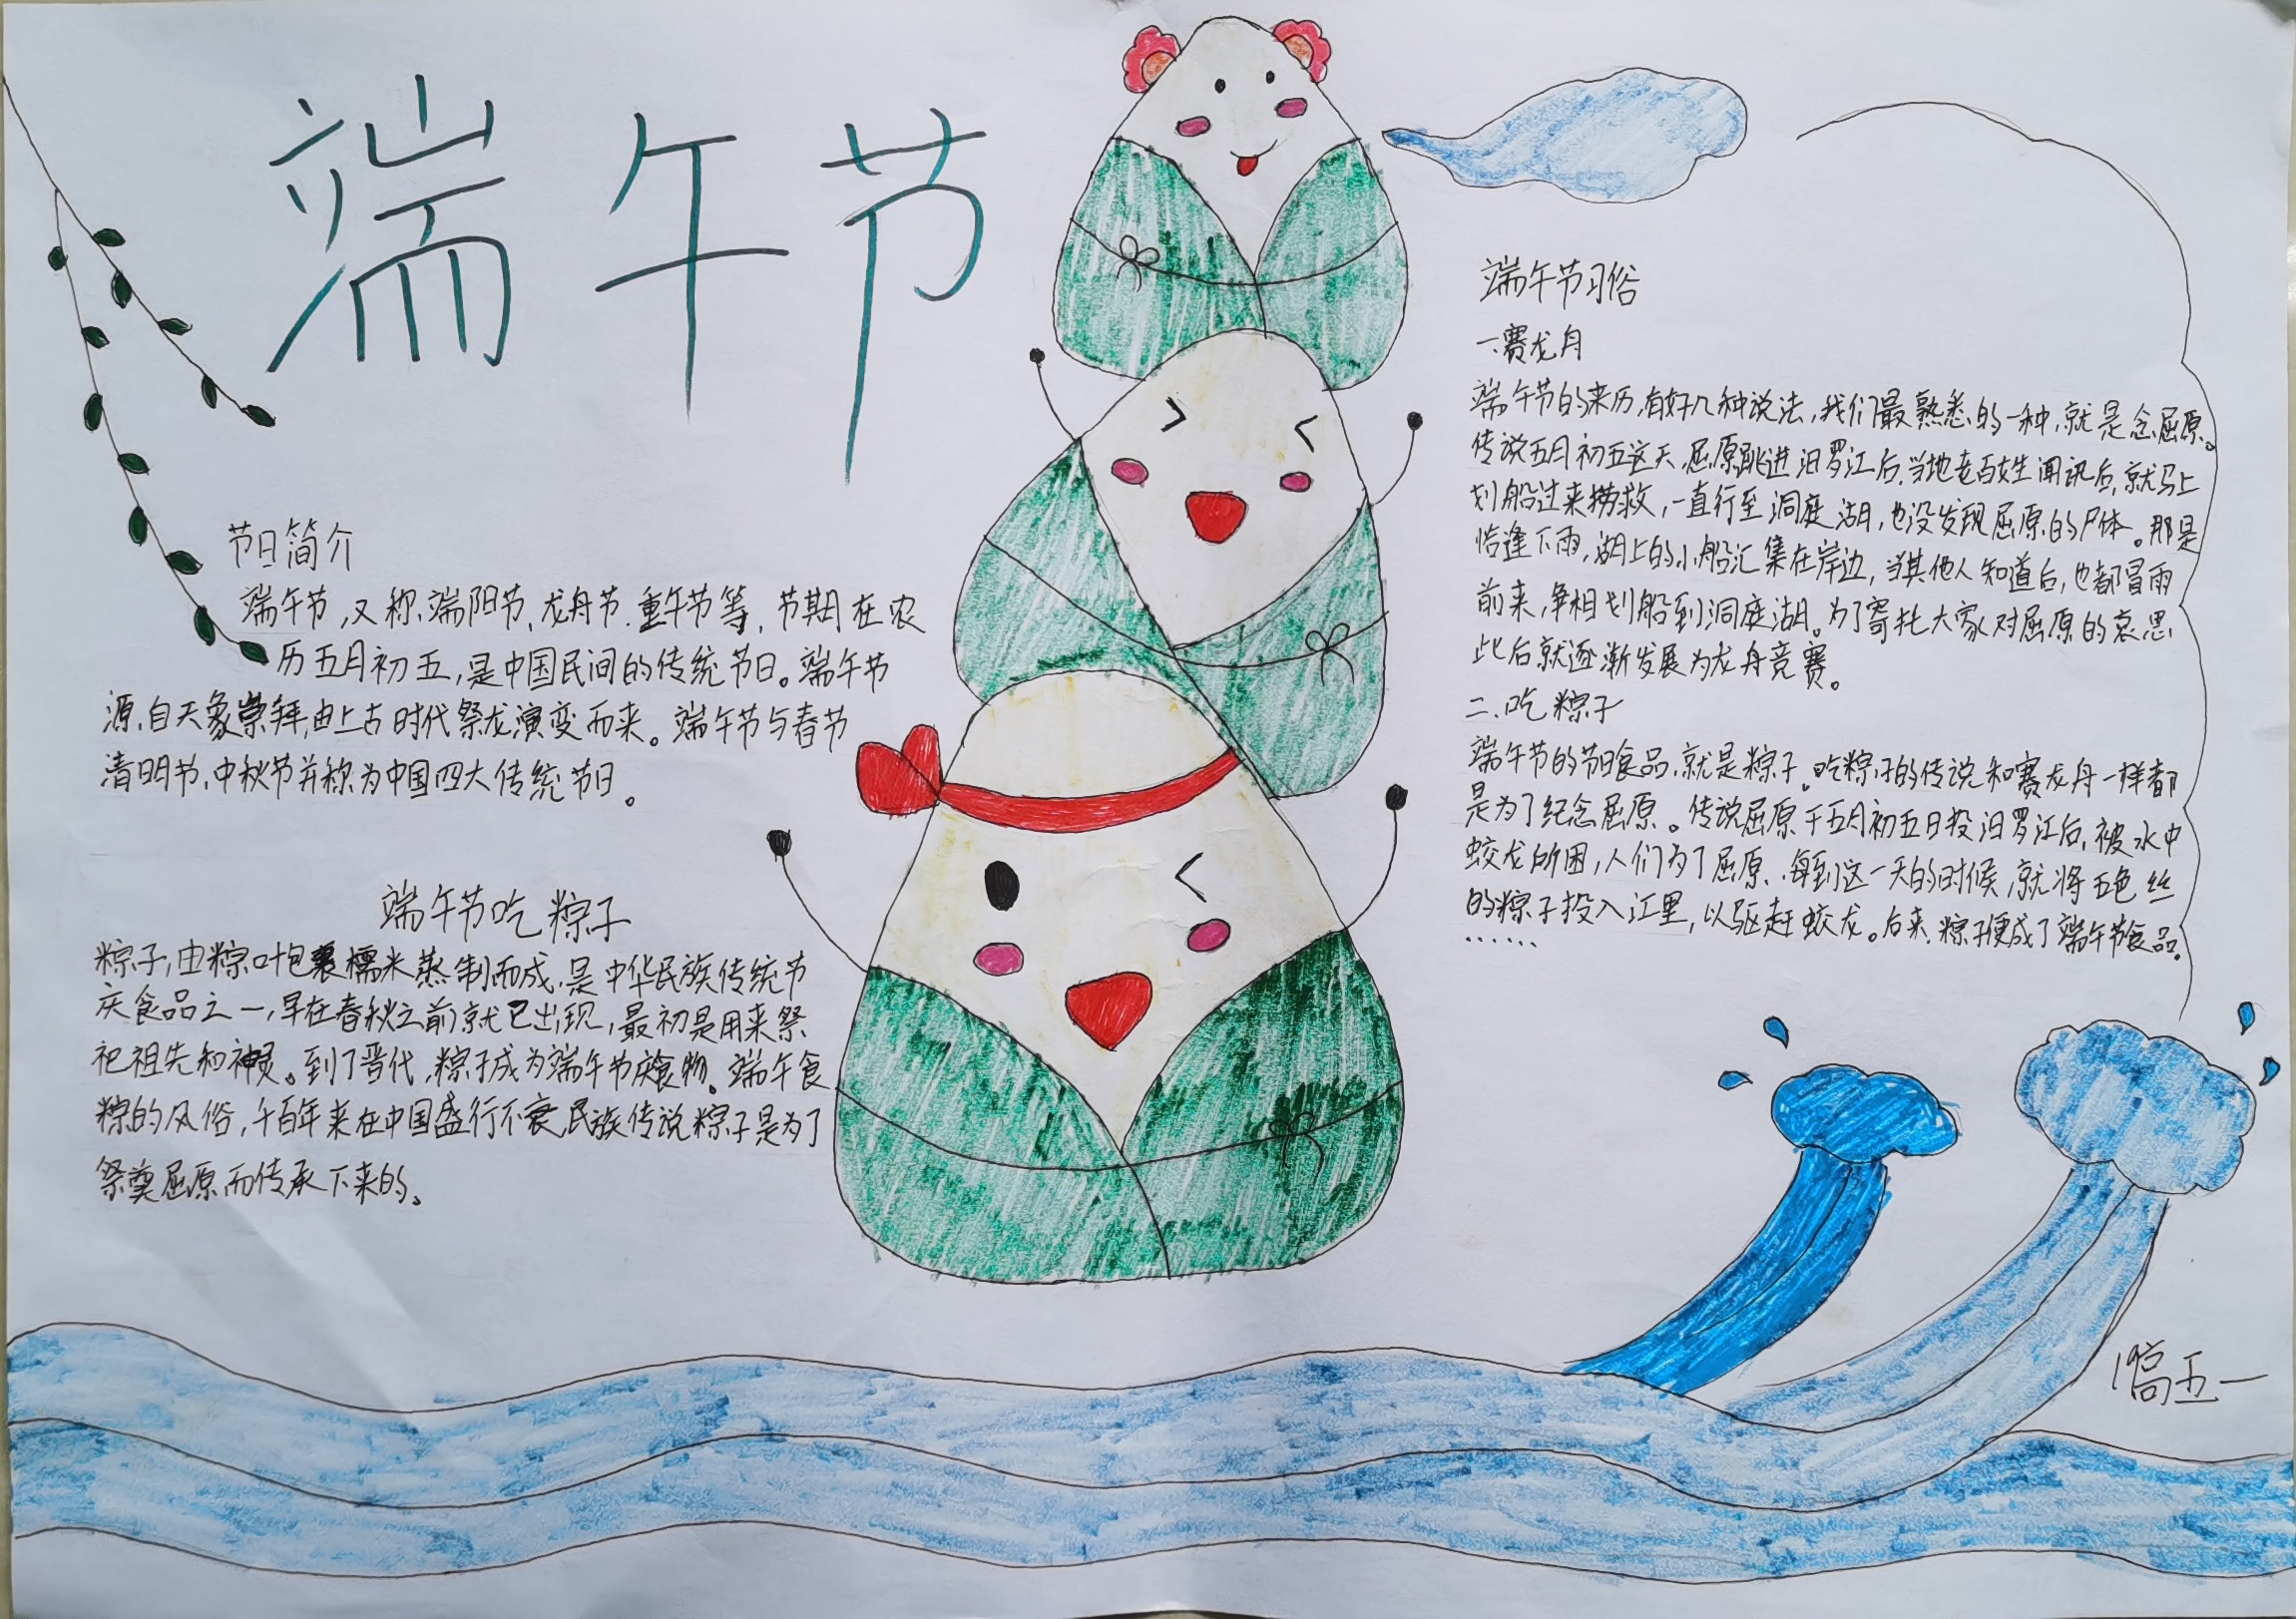 端午节
节日简介
端午节,又称、端阳节、龙舟节、重午节等,节期在农
历五月初五,是中国民间的传统节日。端午节
源自天象崇拜,由上古时代祭龙演变而来。端午节与春节
清明节、中秋节并称为中国四大传统节日。
端午节吃粽子
粽子,由粽叶包裹糯米蒸制而成,是中华民族传统节
庆食品之一,早在春秋之前就已出现,最初是用来祭
祀祖先和神灵。到了晋代,粽子成为端午节庆食物。端午食
粽的风俗,千百年来在中国盛行不衰,民族传说粽子是为了
祭奠屈原而传承下来的。
端午节习俗
一、赛龙舟
端午节的来历,有好几种说法,我们最熟悉的一种,就是念屈原。
传说五月初五这天,屈原跳进汨罗江后,当地老百姓闻讯后,就马上
划船过来捞救,一直行至洞庭湖,也没发现屈原的尸体。那是
恰逢下雨,湖上的小船汇集在岸边,当其他人知道后,也都冒雨
前来,争相划船到洞庭湖。为了寄托大家对屈原的哀思
此后就逐渐发展为龙舟竞赛。
二、吃粽子
端午节的节日食品,就是粽子。吃粽子的传说和赛龙舟一样都
是为了纪念屈原。传说屈原于五月初五日投汨罗江后,被水中
蛟龙所困,人们为了屈原、每到这一天的时候,就将五色丝
的粽子投入江里,以驱赶蛟龙。后来,粽子便成了端午节食品。
……
五一